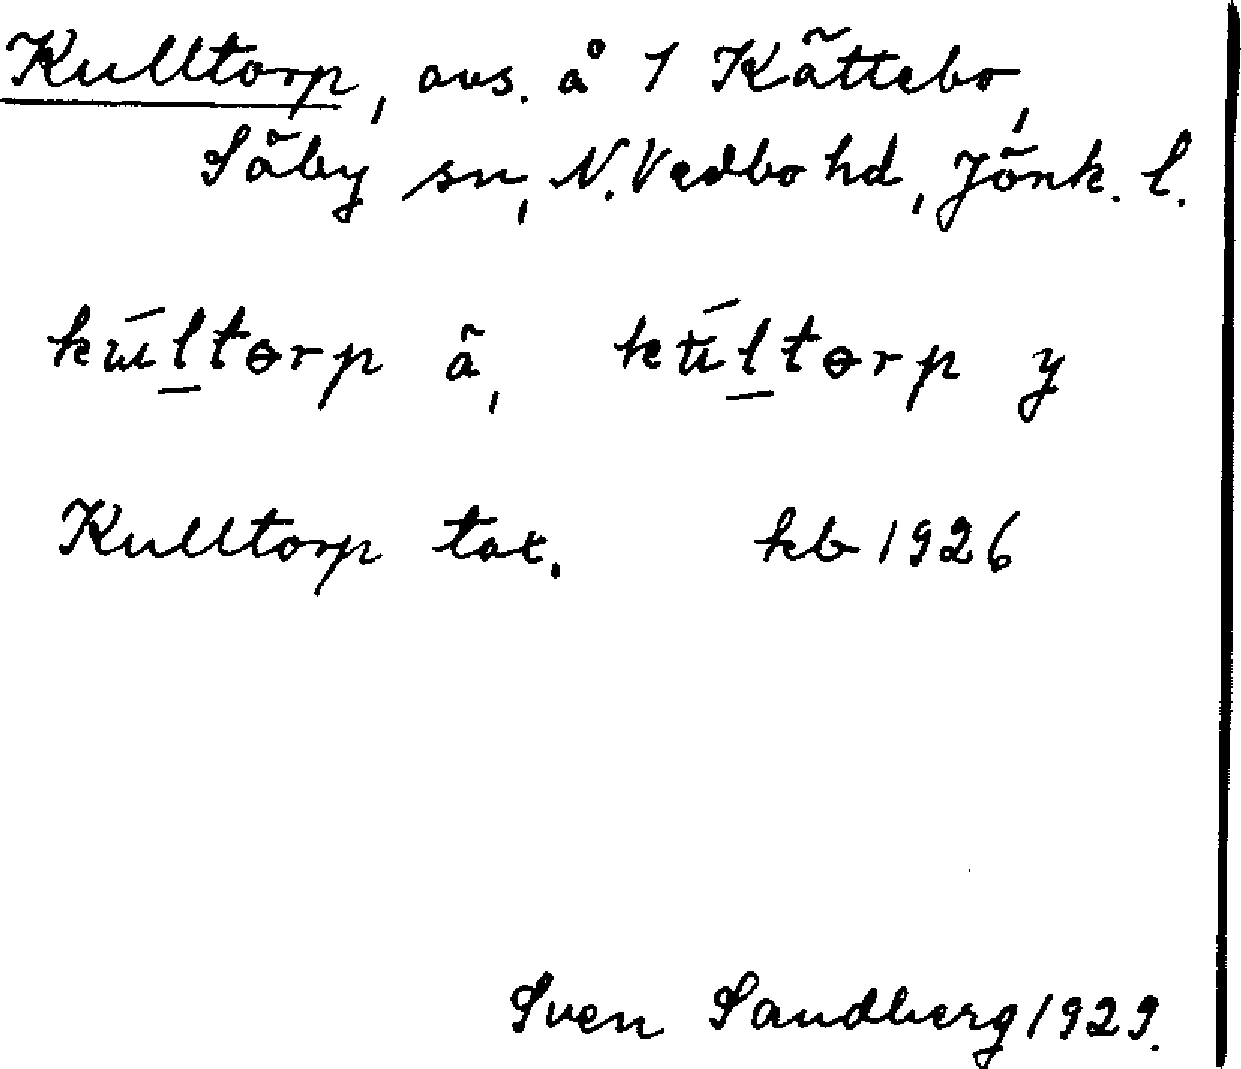 Kulltorp, avs. å 1 Kättebo,
Säby sn, N. Vedbo hd, Jönk. l.
kúltɵrp ä, kúltɵrp y
Kulltorp tax. kb 1926
Sven Sandberg 1929.